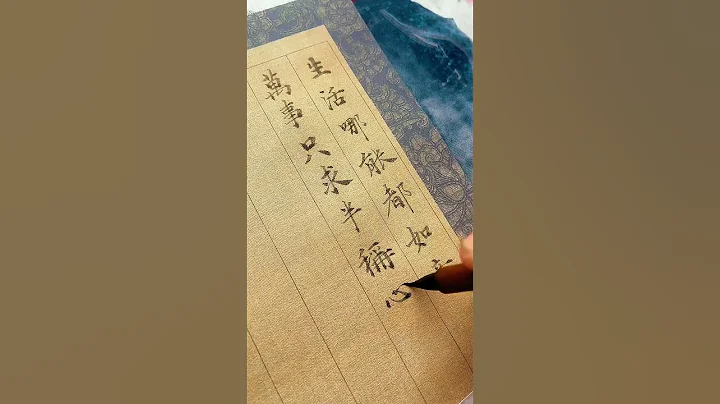 生活哪能都如
萬事只求半稱心